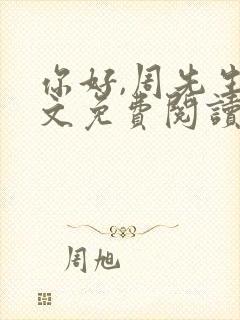 你好,周先生
文免费閱讀
周旭